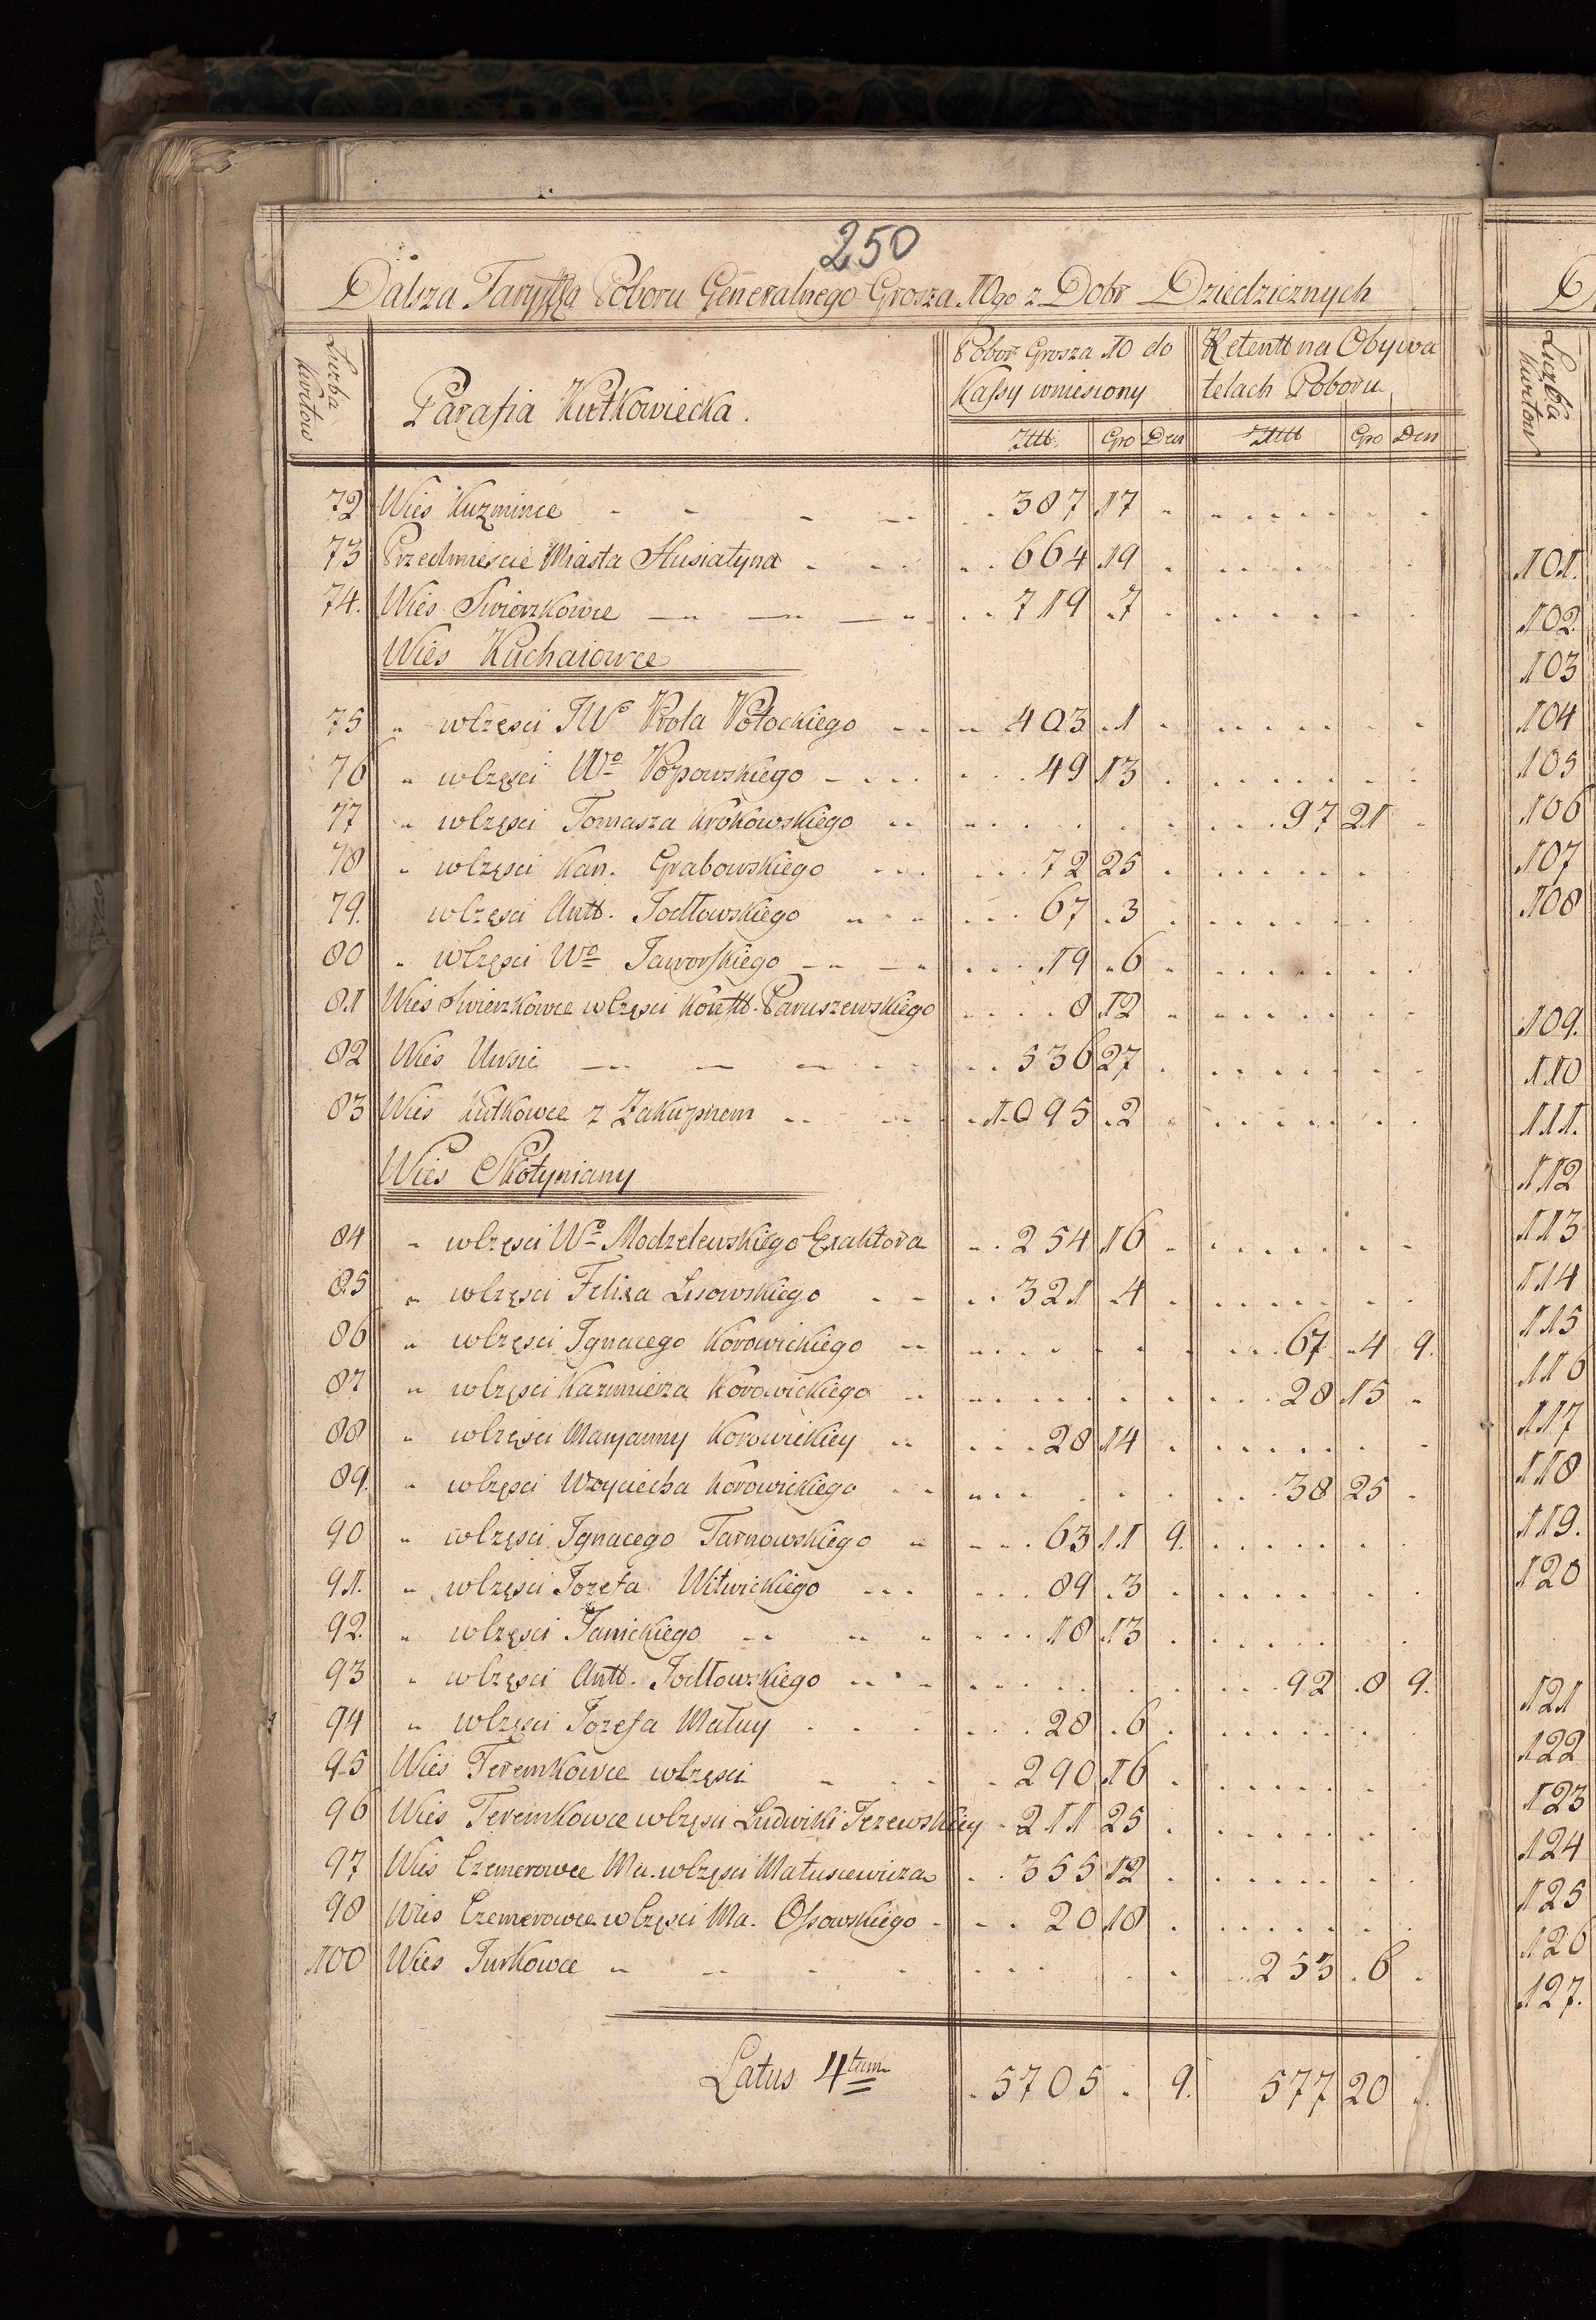 250
Dalsza Taryffa Poboru Generalnego Grosza 10go z Dobr Dziedzicznych
Liczba Kwitow
Parafia Kutkowiecka.
Pobor Grosza 10 do Kassy wniesiony
Retentt na Obywatelach Poboru
Zttt. Gro Den Zttt Gro Den
72 Wies Kuzmince 387 17
73 Przedmiescie Miasta Husiatyna 664 19
74. Wies Swierzkowce 719 7
Wies Kuchaiowce
75 " w Częsci JWo Prota Potockiego 403 1
76 " w Częsci Wo Popowskiego 49 13
77 " w Częsci Tomasza Krokowskiego 97 21
78 " w Częsci Kan. Grabowskiego 72 25
79. w Częsci Antt. Jodłowskiego 67 3
80 " w Częsci Wo Jaworskiego 19 6
81 Wies Swierzkowce w Częsci Paruszewskiego 8 12
82 Wies 536 27
83 Wies Kutkowce z Zakupnem 1095 2
Wies Skotyniany
84 " w Częsci Wo Modzelewskiego Exaktora 254 16
85 " w Częsci Felixa Lisowskiego 321 4
86 " w Częsci Ignacego Korowickiego 67 4 9.
87 " w Częsci Kazimierza Korowickiego 28 15
88 " w Częsci Maryanny Korowickiey 28 14
89. " w Częsci Woyciecha Korowickiego 38 25
90 " w Częsci Ignacego Tarnowskiego 63 11 9.
91. " w Częsci Jozefa Witwickiego 89 3
92. " w Częsci Janickiego 18 13
93 " w Częsci Antt. Jodłowskiego 92 8 9.
94 " w Częsci Jozefa Matuy 28 6
95 Wies Teremkowce w Częsci 290 16
96 Wies Teremkowce w Częsci Ludwiki Jezewskiey 211 25
97 Wies Czemerowce Ma. w Częsci Matusiewicza 355 12
98 Wies Czemerowce w Częsci Ma. Ossowskiego 20 18
100 Wies Jurkowce 253 6
Latus 4tum 5705 . 9. 577 20
Liczba Kwitow
101.
102.
103
104
105
106
107
108
109.
110
111.
112
113
114
115
116
117
118
119.
120
121
122
123
124
125
126
127.